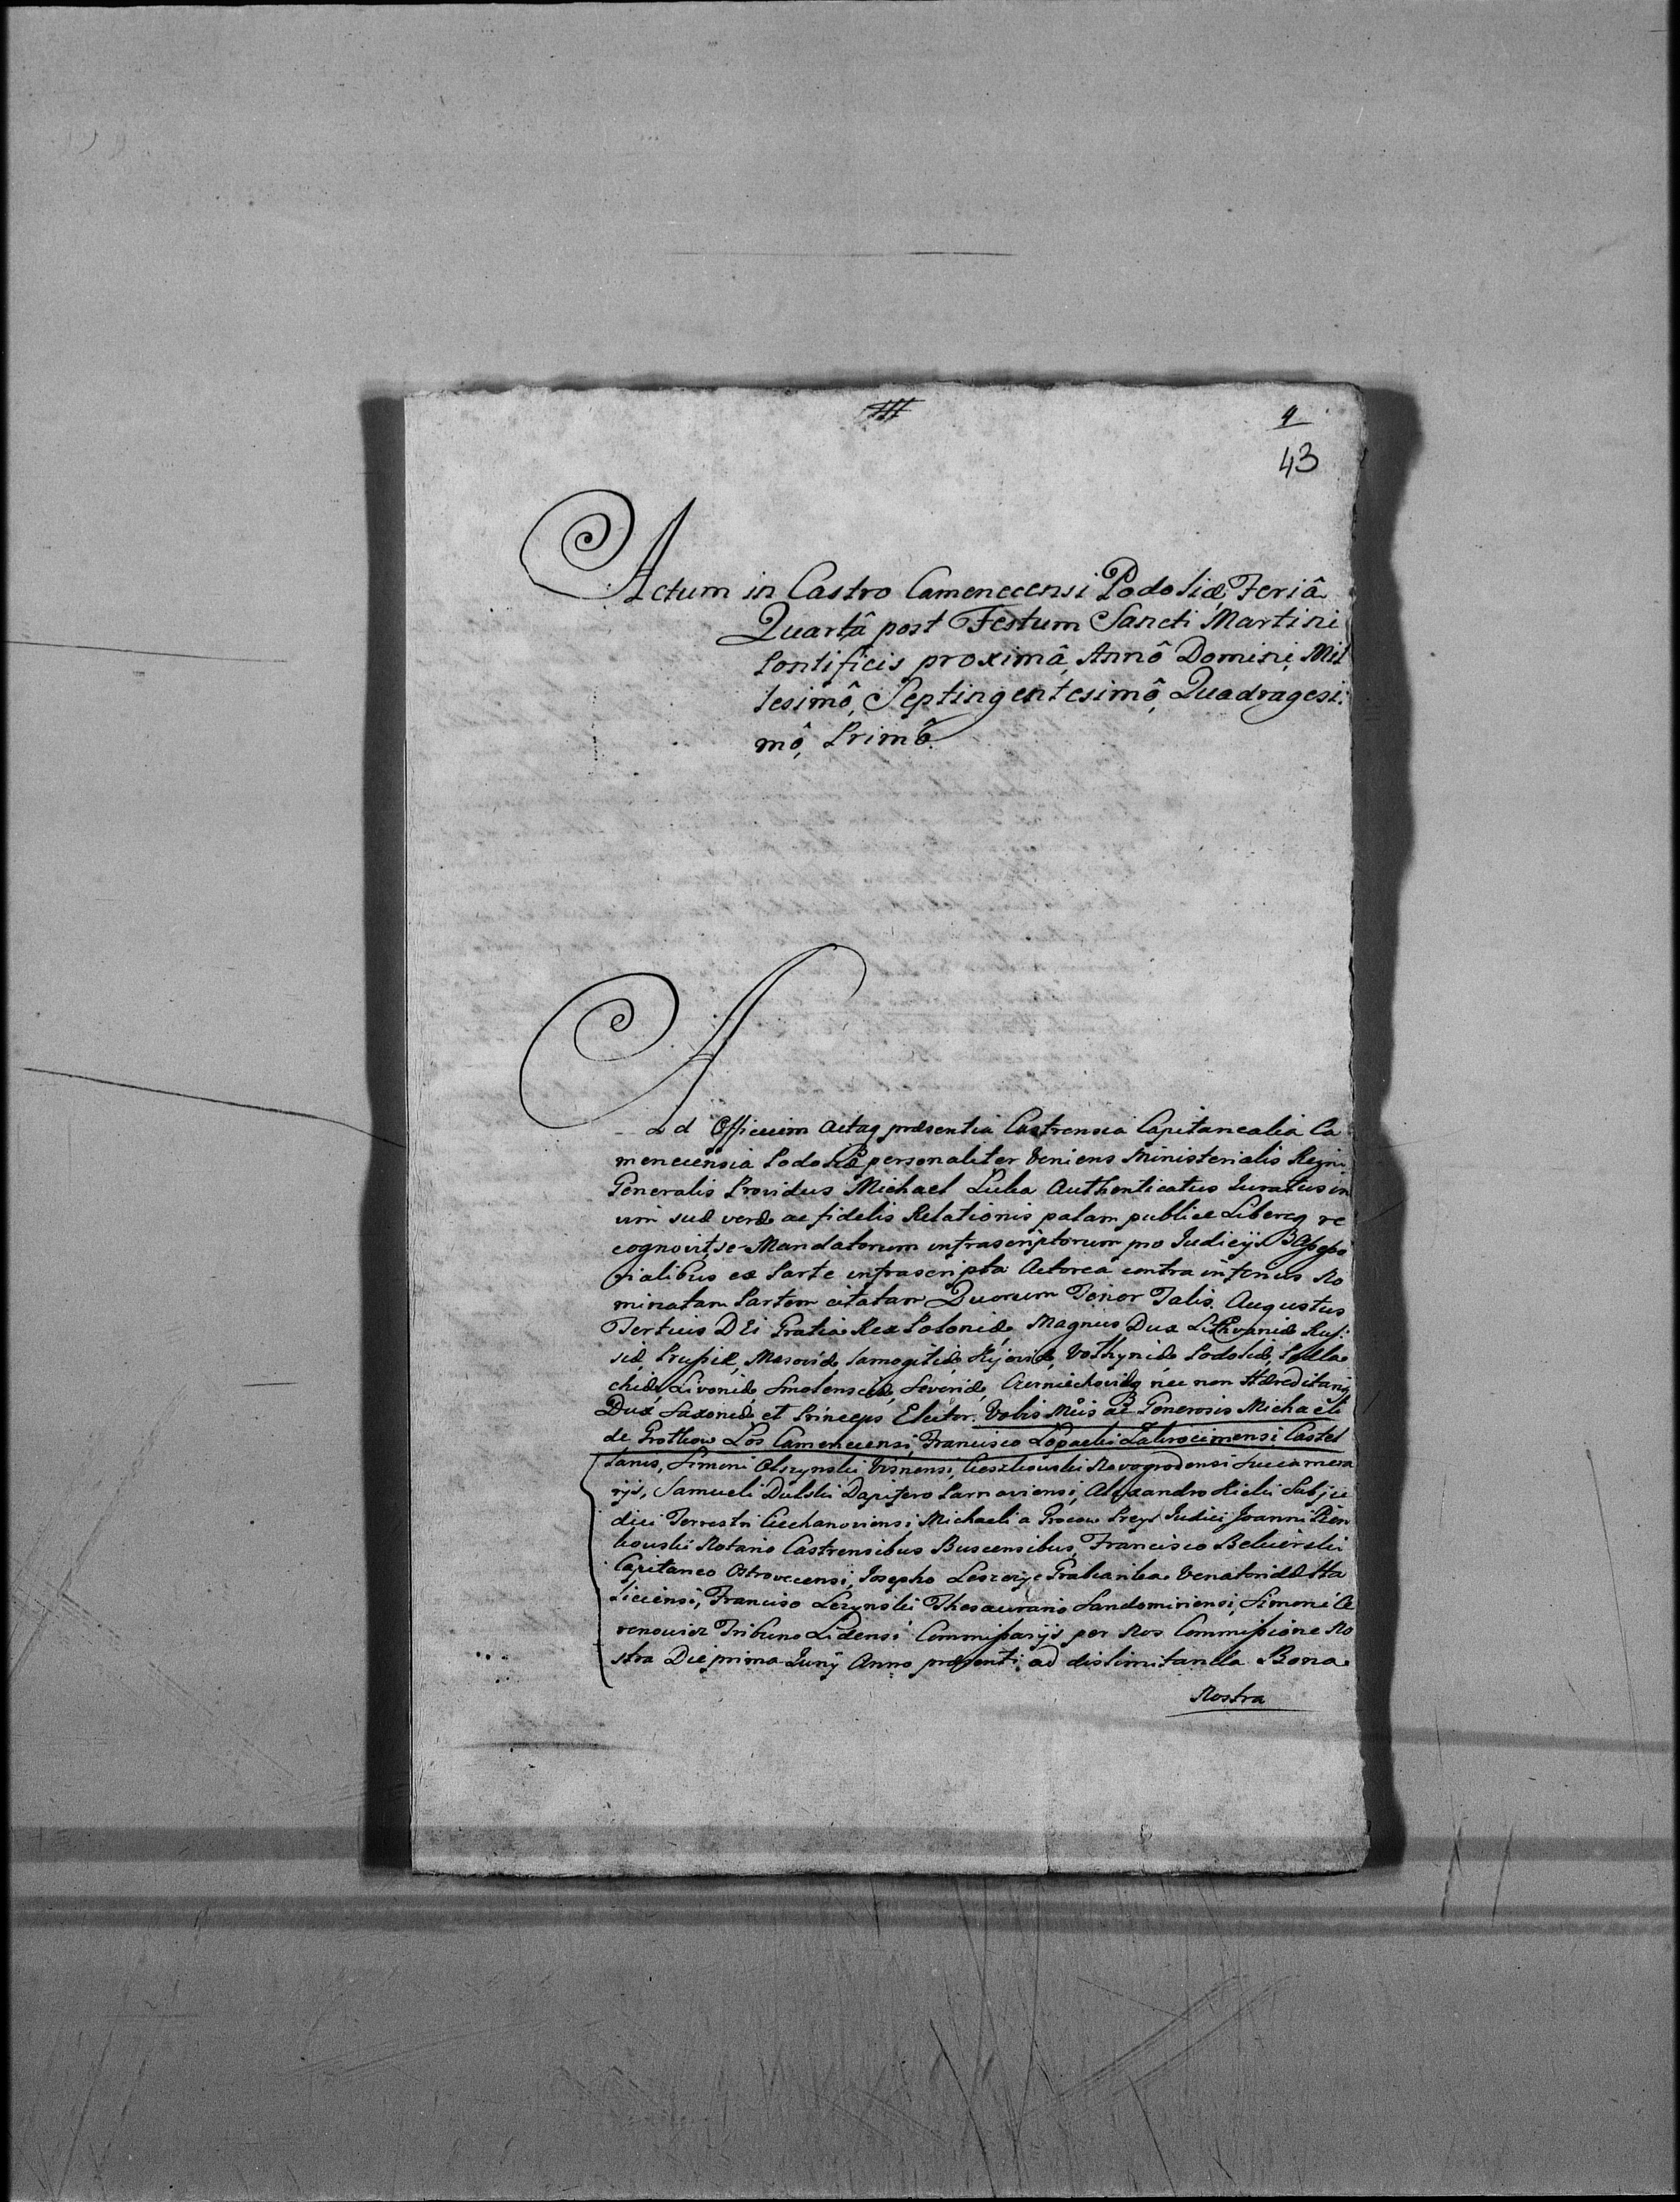 4
43
Actum in Castro Camenecensi Podoliæ Feriâ
Quartâ post Festum Sancti Martini
Pontificis proximâ, Annô Domini, Mil
lesimô, Septingentesimô, Quadragesi:
mô, Primô.
Ad Officium Actaq præsentia Castrensia Capitanealia Ca
menecensia Podoliæ personaliter Veniens Ministerialis Regni
Generalis Providus Michael Authenticatus Juratus in
vim suæ veræ ac fidelis Relationis palam publice Libereq re
cognovit, se Mandatorum infrascriptorum pro Judicijs
rialibus ex Parte infrascripta Actorea contra inferius No
minatam Partem citatam Quorum Tenor Talis. Augustus
Tertius DEi Gratia Rex Poloniæ, Magnus Dux Lithvaniæ Rus:
siæ, Prussiæ, Masoviæ Samogitiæ, Kijoviæ, Volhyniæ Podoliæ, Podla
chiæ, Livoniæ Smolensciæ, Severiæ, Czerniechoviæq nec non Hæreditariq
Dux Saxoniæ et Princeps Elector. Vobis Mcis ac Generosis Michaeli
de Grothow Los Camenecensi, Francisco Lopacki Zakrocimensi Castel
lanis, Simoni Olszynski Visnensi, Cieszkowski Novogrodensi Succamera
rijs, Samueli Dulski Dapifero Parnaviensi, Alexandro Kicki Subju
dici Terrestri Ciechanoviensi Michaeli a Judici Joanni
kowski Notario Castrensibus Buscensibus, Francisco
Capitaneo Ostrovecensi, Josepho Grabianka Venatoridæ Ha
liciensi, Franciso Lezynski Thesaurario Sandomiriensi, Simoni
renowicz Tribuno Lidensi Commissarijs per Nos Commissione No
stra Die prima Junij Anno præsenti ad dislimitanda Bona
Nostra